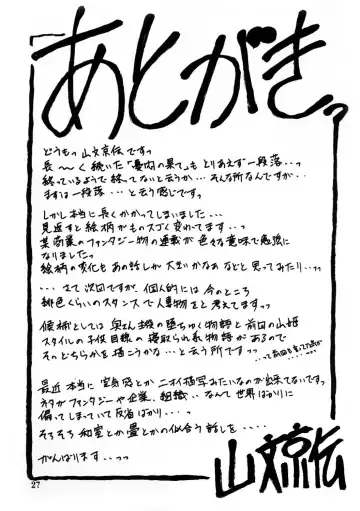 「あとがきっ
どうもっ 山文京伝ですっ
長〜く続いた「憂内の果て」も とりあえず一段落・・っ
終っているようで 終ってないと云うか・・・ そんな所なんですが・・
まずは 一段落・・・ と云う感じですっ
しかし本当に長くかかってしまいました・・・
見返すと絵柄がものスゴく変わってます・・っ
某商業のファンタジー物の連載が 色々な意味で勉強に
なりましたっ
絵柄の変化も あの話しが 大きいかなぁ などと 思ってみたり・・っ
・・・ さて 次回ですが、個人的には 今のところ
緋色くらいのスタンスで人事物をと考えてますっ
候補としては 奥さん主役の堕ちゆく物語と 前回の山姫
スタイルの子供目線の寝取られ系物語があるので
そのどちらかを 描こうかな・・・と云う所ですっ
最近 本当に 空気感とか ニオイ描写みたいなのが出来てないですっ
ネタがファンタジーや企業、組織‥なんて世界ばかりに
偏ってしまっていて反省ばかり・・・っ
そろそろ 和室とか畳とかの似合う 話しを・・・・・
がんばります・・っ
山文京伝
27